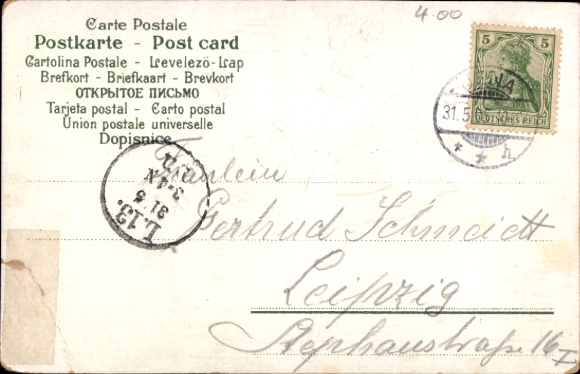 4.00
Carte Postale
Postkarte - Post card
Cartolina Postale - Levelezö-Lap
Brefkort - Briefkaart - Brevkort
ОТКРЫТОЕ ПИСЬМО
Tarjeta postal - Carto postal
Union postale universelle
Dopisnice
5 5
DEUTSCHES REICH
31.5.
L.13.
31 5
3-4N
Fräulein
Gertrud Schmidt
Leipzig
Stephanstraße 16 I